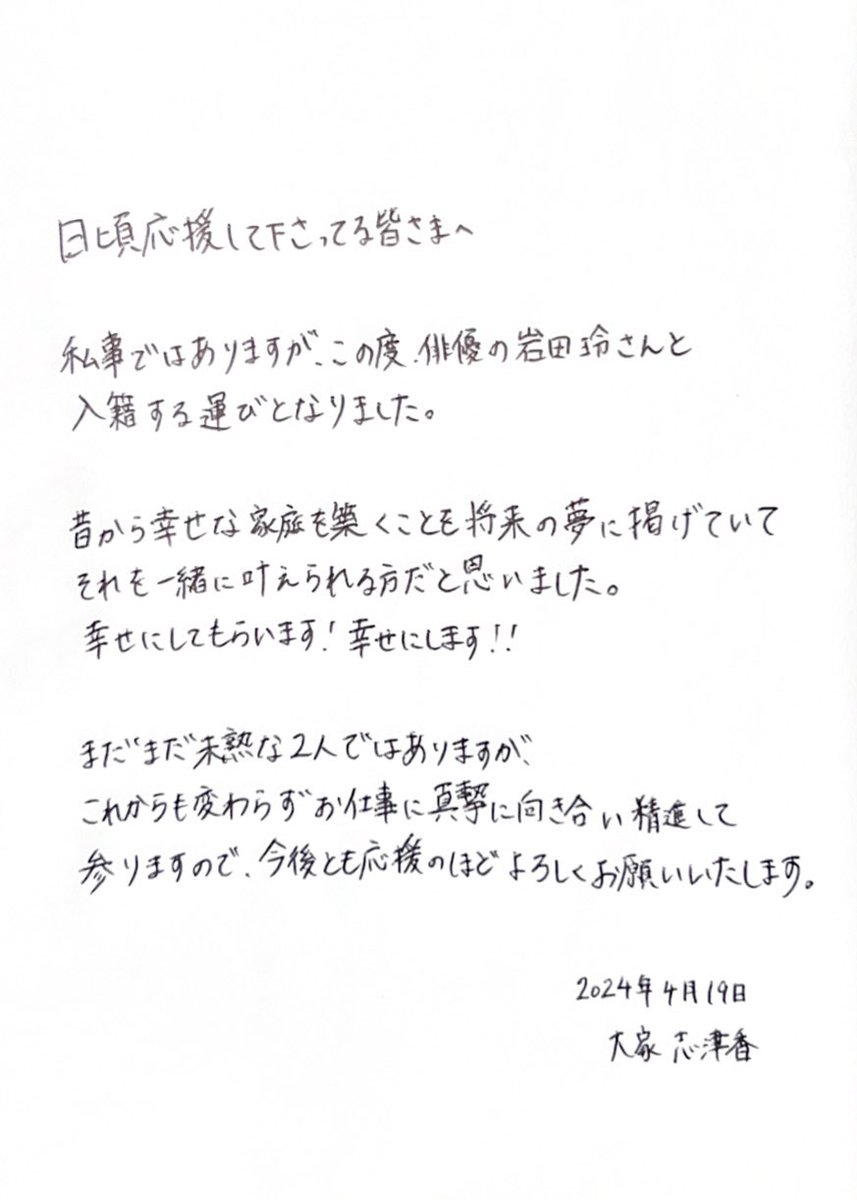 日頃応援して下さってる皆さまへ
私事ではありますが、この度、俳優の岩田玲さんと
入籍する運びとなりました。
昔から幸せな家庭を築くことを将来の夢に掲げていて
それを一緒に叶えられる方だと思いました。
幸せにしてもらいます！幸せにします！！
まだまだ未熟な2人ではありますが、
これからも変わらずお仕事に真摯に向き合い精進して
参りますので、今後とも応援のほどよろしくお願いいたします。
2024年4月19日
大家志津香